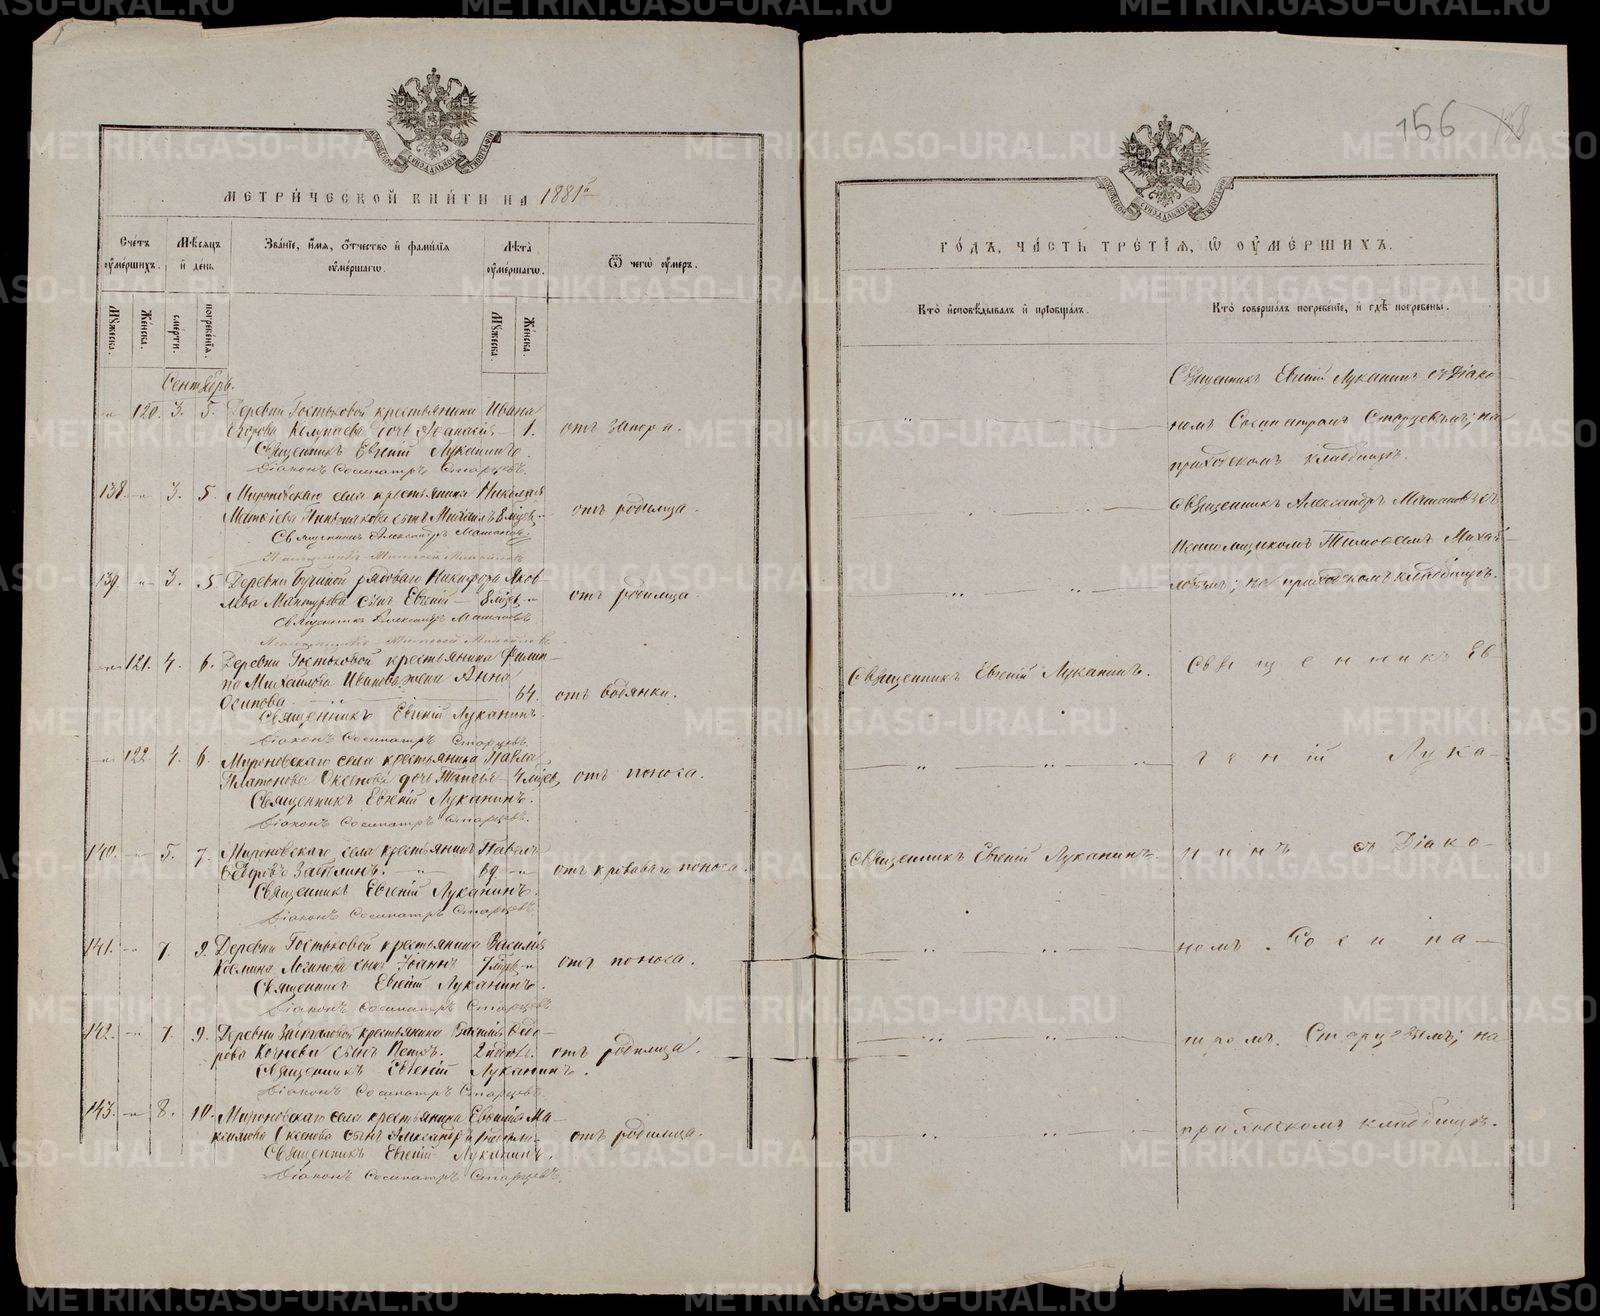 МЕТРИЧЕСКОЙ КНИГИ НА 1881й
Счетъ умершихъ.
Мѣсяцъ и день
Званіе, имя, отчество и фамилія умершагω.
Лѣта умершагω.
Ѿ чегω умеръ.
Мужеска. Женска. смерти. погребенія. Мужеска. Женска.
Сентябрь.
"– 120. 3. 5. Деревни Гостьковой крестьянина Ивана
Егорова Калугаева дочь Аѳанасія – 1. отъ запора.
Священникъ Евгеній Луканинъ.
Діаконъ Сосипатръ Старцевъ.
138. –"– 3. 5. Мироновскаго села крестьянина Николая
Матѳіева сынъ Михаилъ 8 мѣсц. –"– отъ родимца.
Священникъ Александръ Матановъ
139. –"– 3. 5. Деревни Бучиной рядоваго Никифора Яков-
лева Мантурова сынъ Евгеній – 8 мѣсц. –"– отъ родимца.
Священникъ Александръ Матановъ
–"– 121. 4. 6. Деревни Гостьковой крестьянина Филип-
па Михайлова Иванова жена Анна
Осипова – 64. отъ водянки.
Священникъ Евгеній Луканинъ.
Діаконъ Сосипатръ Старцевъ.
–"– 122. 4. 6. Мироновскаго села крестьянина Павла
Платонова Оксенова дочь Таисья – 4 мѣсц. отъ поноса.
Священникъ Евгеній Луканинъ.
Діаконъ Сосипатръ Старцевъ.
140. –"– 5. 7. Мироновскаго села крестьянинъ Павелъ
Ѳедоровъ –"– 69. –"– отъ кроваваго поноса.
Священникъ Евгеній Луканинъ.
Діаконъ Сосипатръ Старцевъ
141. –"– 7. 9. Деревни Гостьковой крестьянина Василія
Космина Логинова сынъ Іоаннъ 7 мѣсц. –"– отъ поноса.
Священникъ Евгеній Луканинъ.
Діаконъ Сосипатръ Старцевъ
142. –"– 7. 9. Деревни крестьянина Василія Ѳедо-
рова Кочнева сынъ Петръ. 2 недѣли. отъ родимца.
Священникъ Евгеній Луканинъ.
Діаконъ Сосипатръ Старцевъ
143. –"– 8. 10. Мироновскаго села крестьянина Евгенія Ма-
ксимова Оксенова сынъ Александръ отъ родимца.
Священникъ Евгеній Луканинъ.
Діаконъ Сосипатръ Старцевъ.
156
ГОДЪ, ЧАСТЬ ТРЕТІЯ, Ѿ УМЕРШИХЪ.
Кто исповѣдывалъ и пріобщалъ.
Кто совершалъ погребеніе, и гдѣ погребены.
Священникъ Евгеній Луканинъ съ Діако-
номъ Сосипатромъ Старцевымъ; на
приходскомъ кладбищѣ.
Священникъ Александръ Матановъ съ
Псаломщикомъ Тимоѳеемъ Михай-
ловымъ; на приходскомъ кладбищѣ.
Священникъ Евгеній Луканинъ.
Священникъ Ев-
геній Лука-
Священникъ Евгеній Луканинъ
нинъ съ Діако-
номъ Сосипа-
тромъ Старцевымъ; на
приходскомъ кладбищѣ.
METRIKI.GASO-URAL.RU